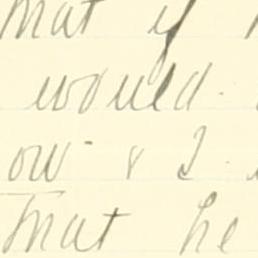 that if
would
ow & I
that he